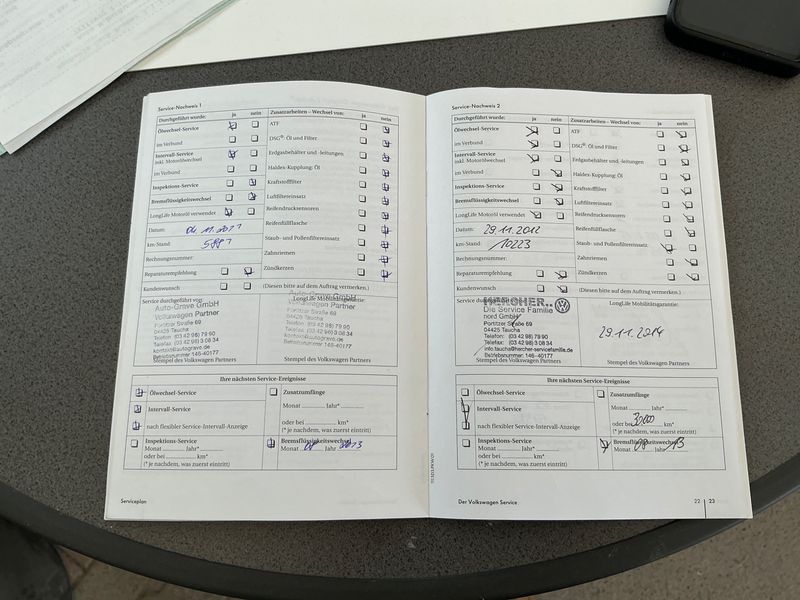 Service-Nachweis 1
Durchgeführt wurde: ja nein
Zusatzarbeiten – Wechsel von: ja nein
Ölwechsel-Service
im Verbund
Intervall-Service
inkl. Motorölwechsel
im Verbund
Inspektions-Service
Bremsflüssigkeitswechsel
LongLife Motoröl verwendet
Datum: 04.11.2011
km-Stand: 5887
Rechnungsnummer:
Reparaturempfehlung
Kundenwunsch
ATF
DSG® Öl und Filter
Erdgasbehälter und -leitungen
Haldex-Kupplung: Öl
Kraftstofffilter
Luftfiltereinsatz
Reifendrucksensoren
Reifenfüllflasche
Staub- und Pollenfiltereinsatz
Zahnriemen
Zündkerzen
(Diesen bitte auf dem Auftrag vermerken.)
Service durchgeführt von:
Auto-Grave GmbH
Volkswagen Partner
Portitzer Straße 69
04425 Taucha
Telefon: (03 42 98) 79 90
Telefax: (03 42 98) 3 08 34
kontakt@autograve.de
Betriebsnummer 146-40177
Stempel des Volkswagen Partners
LongLife Mobilitätsgarantie:
Auto-Grave GmbH
Volkswagen Partner
Portitzer Straße 69
04425 Taucha
Telefon: (03 42 98) 79 90
Telefax: (03 42 98) 3 08 34
kontakt@autograve.de
Betriebsnummer 146-40177
Stempel des Volkswagen Partners
Ihre nächsten Service-Ereignisse
Ölwechsel-Service
Intervall-Service
nach flexibler Service-Intervall-Anzeige
Inspektions-Service
Monat Jahr*
oder bei km*
(* je nachdem, was zuerst eintritt)
Zusatzumfänge
Monat Jahr*
oder bei km*
(* je nachdem, was zuerst eintritt)
Bremsflüssigkeitswechsel
Monat 08 Jahr 2013
Serviceplan
Service-Nachweis 2
Durchgeführt wurde: ja nein
Zusatzarbeiten – Wechsel von: ja nein
Ölwechsel-Service
im Verbund
Intervall-Service
inkl. Motorölwechsel
im Verbund
Inspektions-Service
Bremsflüssigkeitswechsel
LongLife Motoröl verwendet
Datum: 29.11.2012
km-Stand: 10223
Rechnungsnummer:
Reparaturempfehlung
Kundenwunsch
ATF
DSG® Öl und Filter
Erdgasbehälter und -leitungen
Haldex-Kupplung: Öl
Kraftstofffilter
Luftfiltereinsatz
Reifendrucksensoren
Reifenfüllflasche
Staub- und Pollenfiltereinsatz
Zahnriemen
Zündkerzen
(Diesen bitte auf dem Auftrag vermerken.)
Service durchgeführt von:
HERCHER..
Die Service Familie
nord GmbH
Portitzer Straße 69
04425 Taucha
Telefon: (03 42 98) 79 90
Telefax: (03 42 98) 3 08 34
info.taucha@hercher-servicefamilie.de
Betriebsnummer: 146-40177
Stempel des Volkswagen Partners
LongLife Mobilitätsgarantie:
29.11.2014
Stempel des Volkswagen Partners
Ihre nächsten Service-Ereignisse
Ölwechsel-Service
Intervall-Service
nach flexibler Service-Intervall-Anzeige
Inspektions-Service
Monat Jahr*
oder bei km*
(* je nachdem, was zuerst eintritt)
Zusatzumfänge
Monat Jahr*
oder bei 30000 km*
(* je nachdem, was zuerst eintritt)
Bremsflüssigkeitswechsel
Monat 08 Jahr 13
Der Volkswagen Service
22 | 23